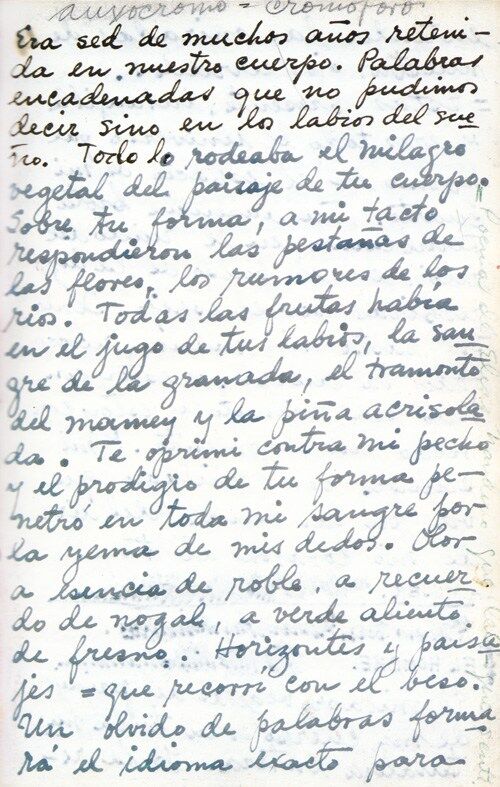 auxocromo = cromóforo
Era sed de muchos años reteni-
da en nuestro cuerpo. Palabras
encadenadas que no pudimos
decir sino en los labios del sue-
ño. Todo lo rodeaba el milagro
vegetal del paisaje de tu cuerpo.
Sobre tu forma, a mi tacto
respondieron las pestañas de
las flores, los rumores de los
rios. Todas las frutas había
en el jugo de tus labios, la san
gre de la granada, el tramonto
del mamey y la piña acrisola
da. Te oprimi contra mi pecho
y el prodigio de tu forma pe-
netró en toda mi sangre por
la yema de mis dedos. Olor
a esencia de roble, a recuer-
do de nogal, a verde aliento
de fresno. Horizontes y paisa
jes = que recorrí con el beso.
Un olvido de palabras forma
rá el idioma exacto para